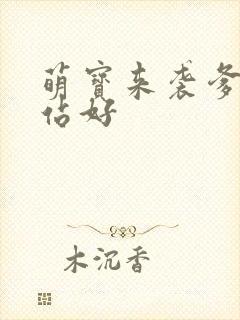 萌宝来袭爹
站好
木沉香